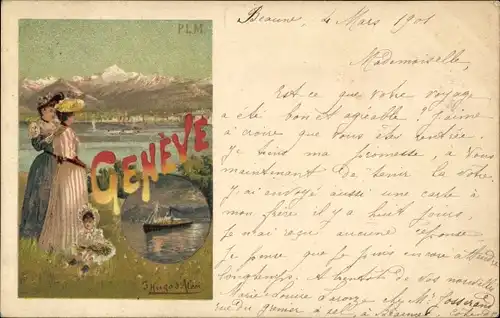 PLM
GENÈVE
F. Hugo d'Alési
Beaune, 4 Mars 1901
Mademoiselle,
Est-ce que votre voyage
a été bon et agréable? J'aime
à croire que vous êtes rentrée.
Je tiens ma promesse, à vous
maintenant de tenir la votre.
J'ai envoyé aussi une carte à
mon frère il y a huit jours,
je n'ai reçu aucune réponse
Je pense que je puis encore attendre
longtemps. A bientôt de vos nouvelles
Marie-Louise chez Mr Josserand
rue du grenier à sel, à Beaune, Côte d'